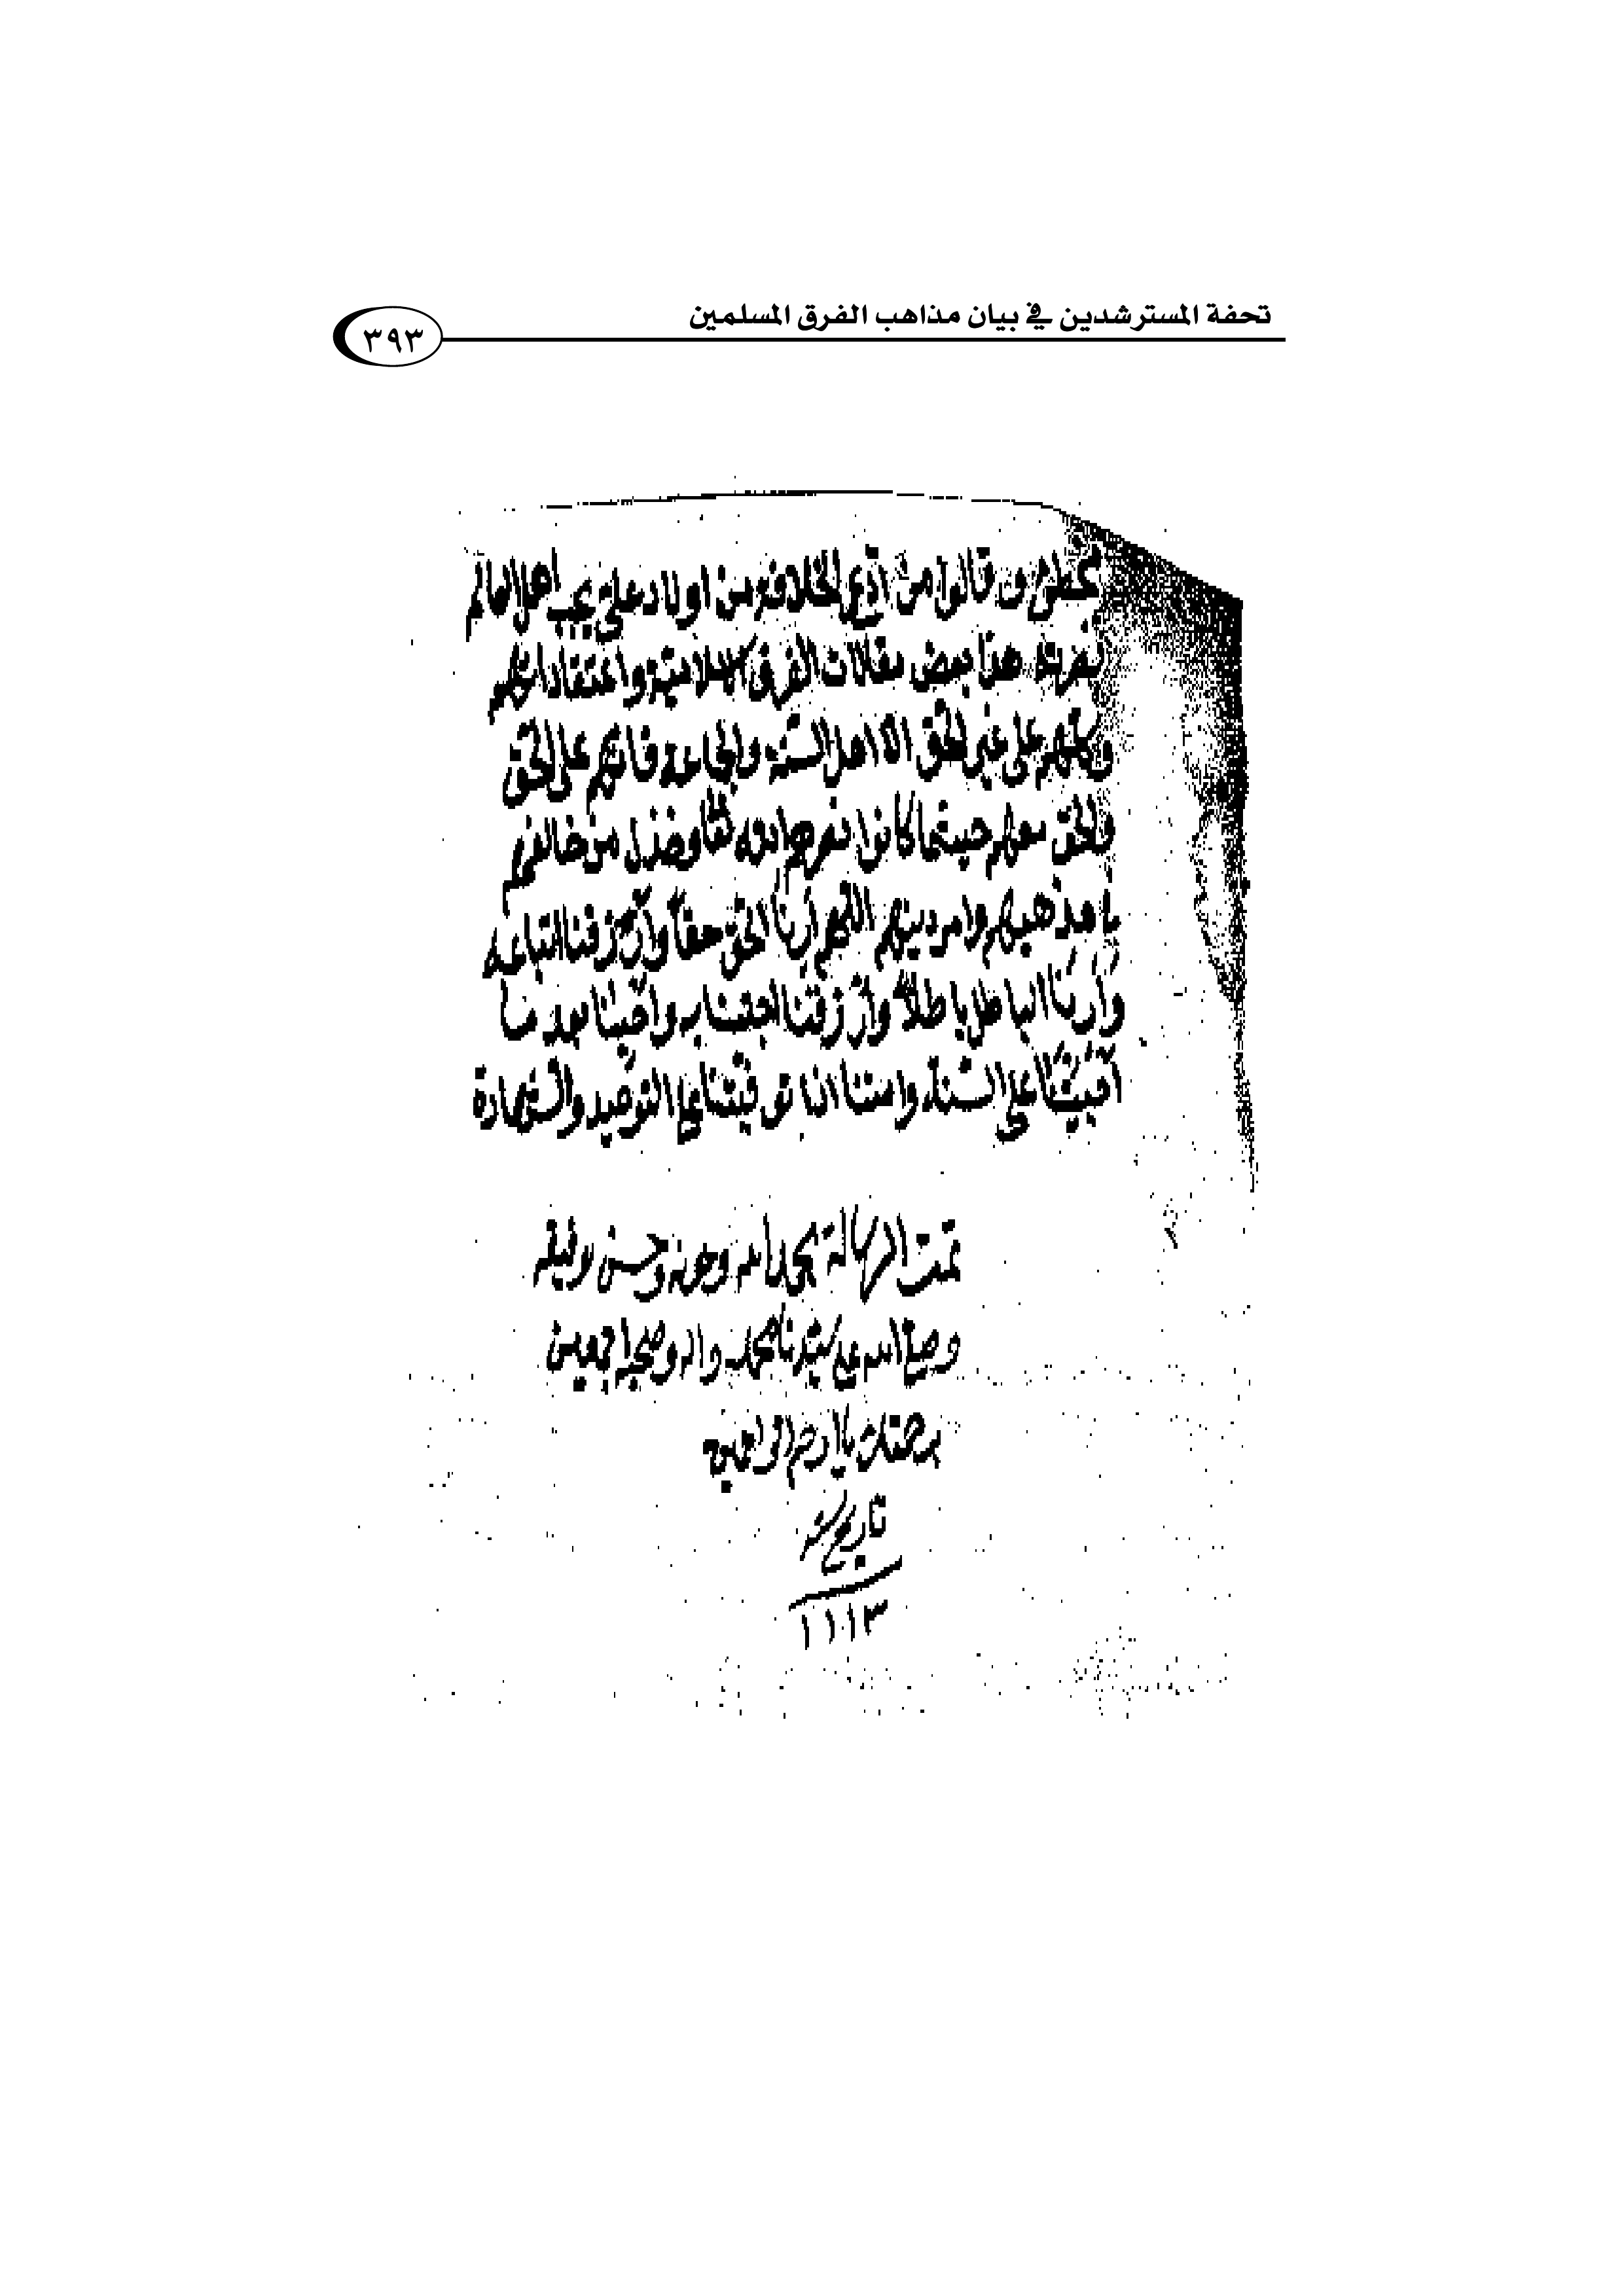 تحفة المسترشدين في بيان مذاهب الفرق المسلمين
٣٩٣
وقالوا من ادعى الخلافة من اولاد علي يجب اهل العالم
نصرته هذا بعض مقالات الفرق الاسلامية واعتقاداتهم
وكلهم على غير الحق الا اهل السنة والجماعة فانهم على الحق
والحق معهم حيثما كانوا نصرهم الله وخذل من خالفهم
اللهم ارنا الحق حقا وارزقنا اتباعه
وارنا الباطل باطلا وارزقنا اجتنابه واحينا
على السنة وامتنا اذا توفيتنا على التوحيد والشهادة
تمت الرسالة بحمد الله وعونه وحسن توفيقه
وصلى الله على سيدنا محمد واله وصحبه اجمعين
برحمتك يا ارحم الراحمين
تاريخ سنه
١١١٣